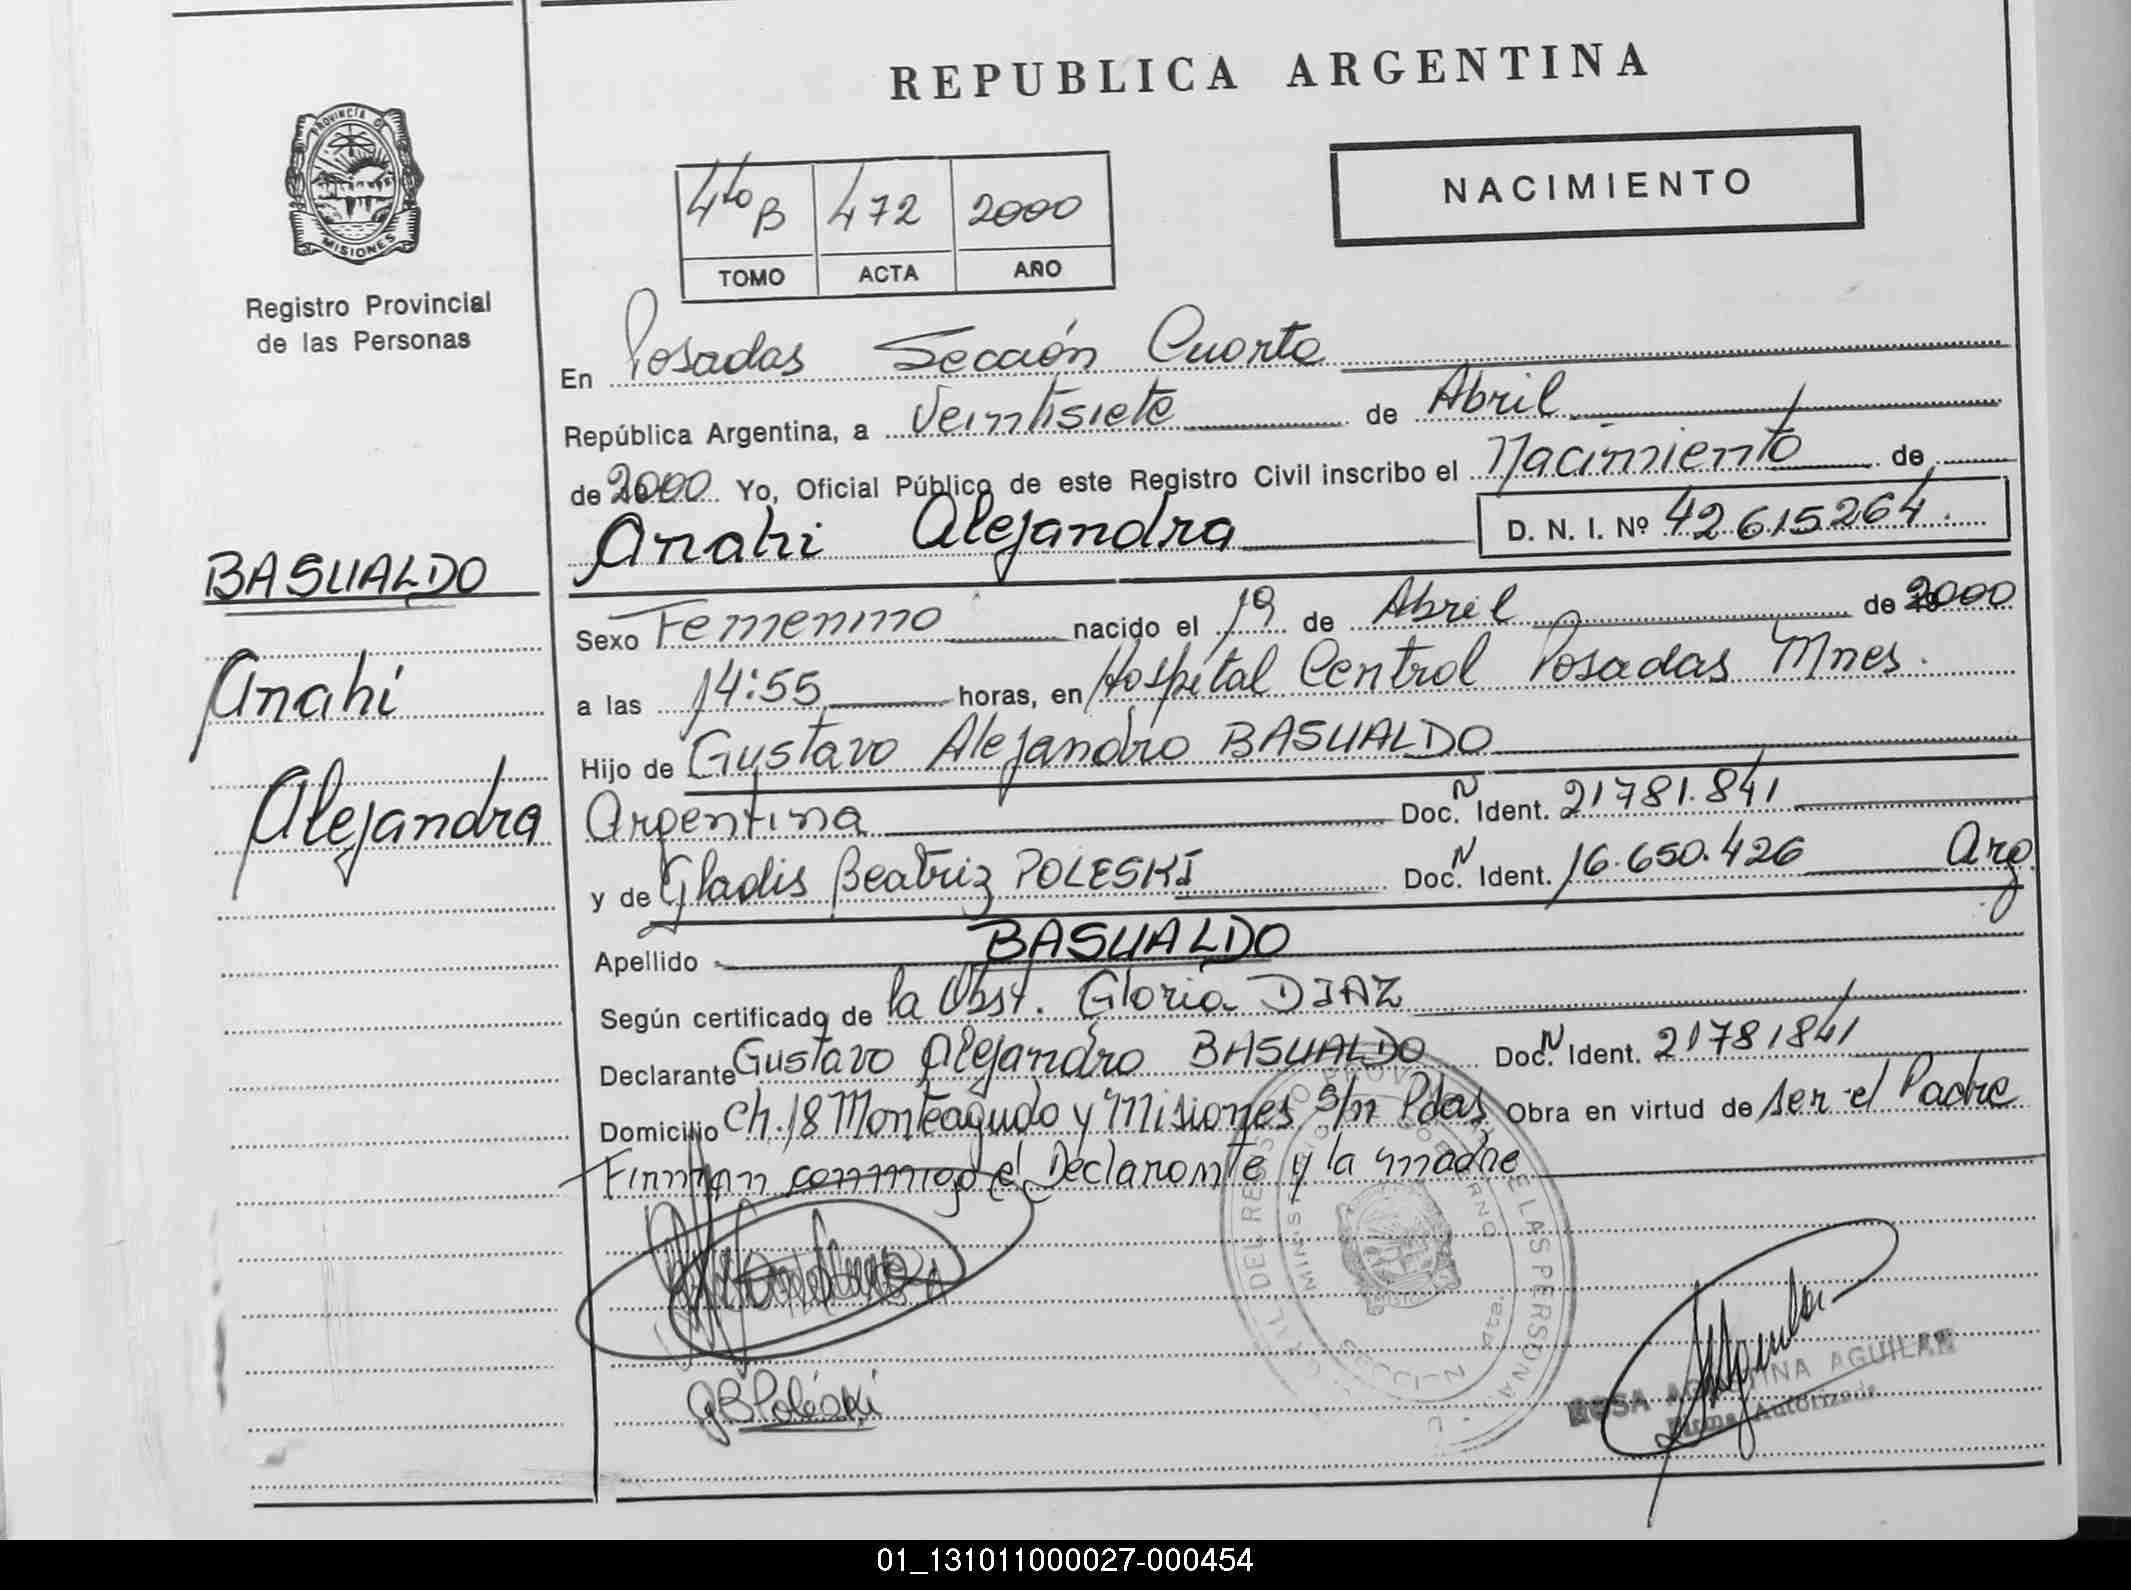 REPUBLICA ARGENTINA
PROVINCIA DE
MISIONES
Registro Provincial
de las Personas
4to B 472 2000
TOMO ACTA AÑO
NACIMIENTO
En Posadas Sección Cuarta
República Argentina, a Veintisiete de Abril
de 2000 Yo, Oficial Público de este Registro Civil inscribo el Nacimiento de
Anahi Alejandra D. N. I. Nº 42615264.
BASUALDO
Anahi
Alejandra
Sexo Femenino nacido el 19 de Abril de 2000
a las 14:55 horas, en Hospital Central Posadas Mnes.
Hijo de Gustavo Alejandro BASUALDO
Argentina Doc. N Ident. 21781.841
y de Gladis Beatriz POLESKI Doc. N Ident. 16.650.426 Arg.
Apellido BASUALDO
Según certificado de la Obst. Gloria DIAZ
Declarante Gustavo Alejandro BASUALDO Doc. N Ident. 21781841
Domicilio Ch. 18 Monteagudo y Misiones S/n Pdas Obra en virtud de ser el Padre
Firman conmigo el Declarante y la madre
GBPoleski
ROSA AGUSTINA AGUILAR
Firma Autorizada
01_131011000027-000454